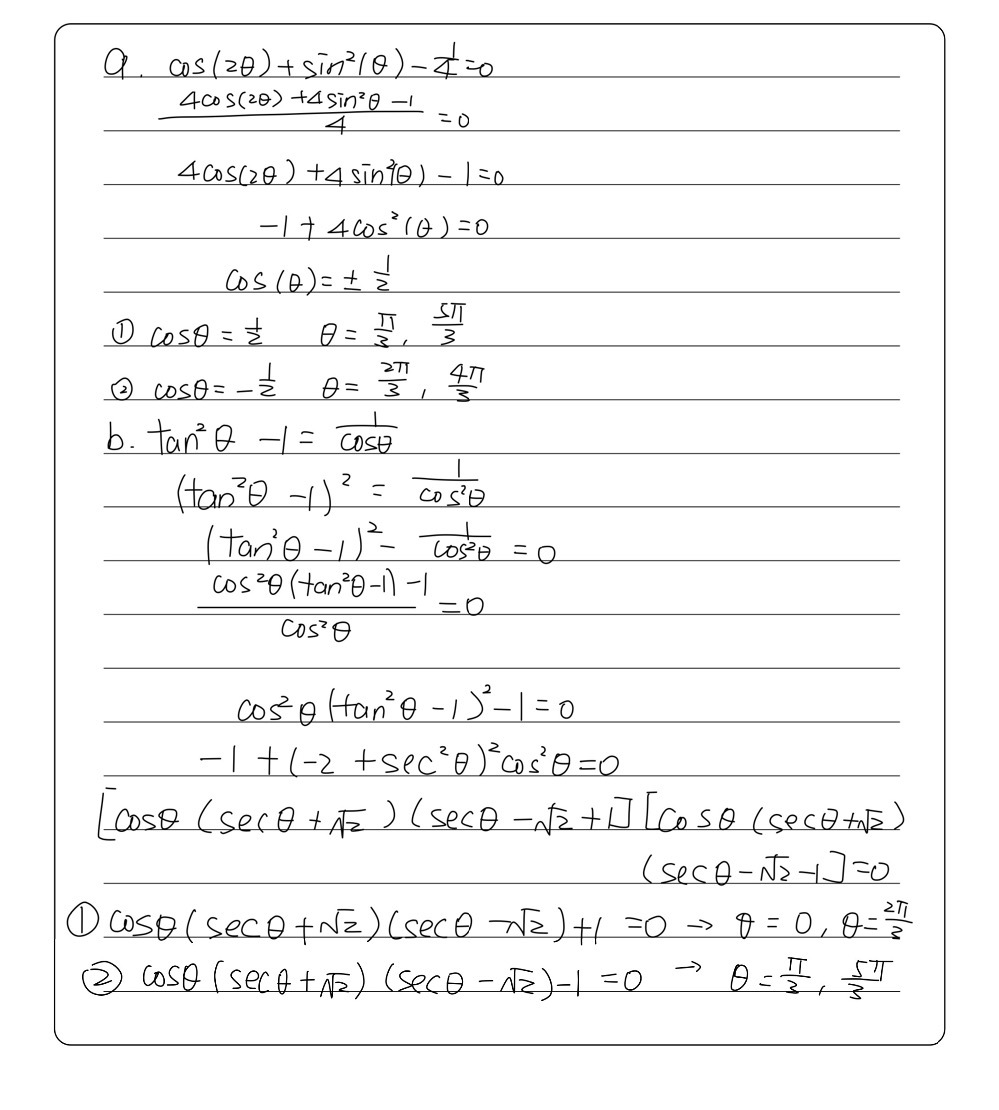 a. cos(2θ)+sin²(θ)-1/4=0
(4cos(2θ)+4sin²θ-1)/4=0
4cos(2θ)+4sin²(θ)-1=0
-1+4cos²(θ)=0
cos(θ)=±1/2
① cosθ=1/2 θ=π/3, 5π/3
② cosθ=-1/2 θ=2π/3, 4π/3
b. tan²θ-1=1/cosθ
(tan²θ-1)²=1/cos²θ
(tan²θ-1)²-1/cos²θ=0
(cos²θ(tan²θ-1)-1)/cos²θ=0
cos²θ(tan²θ-1)²-1=0
-1+(-2+sec²θ)²cos²θ=0
[cosθ(secθ+√2)(secθ-√2+1][cosθ(secθ+√2)
(secθ-√2-1]=0
① cosθ(secθ+√2)(secθ-√2)+1=0 → θ=0, θ=2π/3
② cosθ(secθ+√2)(secθ-√2)-1=0 → θ=π/3, 5π/3